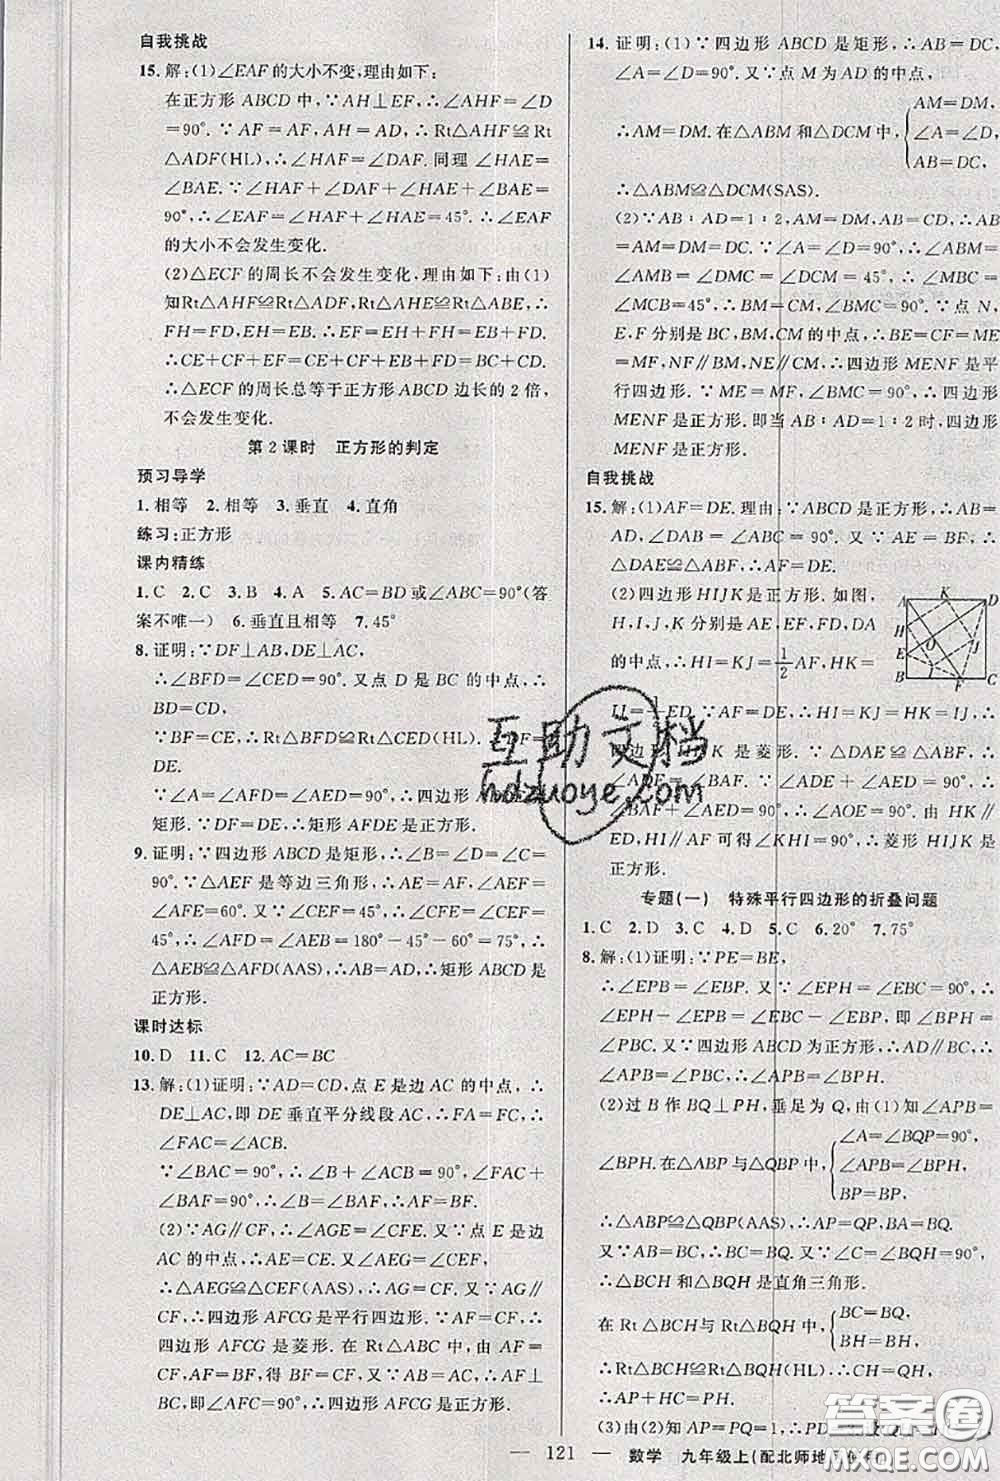 自我挑战
15.解:(1)∠EAF的大小不变,理由如下:
在正方形ABCD中,∵AH⊥EF,∴∠AHF=∠D
=90°.∵AF=AF,AH=AD,∴Rt△AHF≌Rt
△ADF(HL).∴∠HAF=∠DAF.同理∠HAE=
∠BAE.∵∠HAF+∠DAF+∠HAE+∠BAE=
90°,∴∠EAF=∠HAF+∠HAE=45°.∴∠EAF
的大小不会发生变化.
(2)△ECF的周长不会发生变化,理由如下:由(1)
知Rt△AHF≌Rt△ADF,Rt△AHE≌Rt△ABE,∴
FH=FD,EH=EB.∴EF=EH+FH=EB+FD.
∴CE+CF+EF=CE+CF+EB+FD=BC+CD.
∴△ECF的周长总等于正方形ABCD边长的2倍,
不会发生变化.
第2课时 正方形的判定
预习导学
1.相等 2.相等 3.垂直 4.直角
练习:正方形
课内精练
1.C 2.C 3.B 4.A 5.AC=BD或∠ABC=90°(答
案不唯一) 6.垂直且相等 7.45°
8.证明:∵DF⊥AB,DE⊥AC,
∴∠BFD=∠CED=90°.又点D是BC的中点,∴
BD=CD,
∵BF=CE,∴Rt△BFD≌Rt△CED(HL).∴DF=
DE.
∵∠A=∠AFD=∠AED=90°,∴四边形AFDE是
矩形.∵DF=DE,∴矩形AFDE是正方形.
9.证明:∵四边形ABCD是矩形,∴∠B=∠D=∠C=
90°.∵△AEF是等边三角形,∴AE=AF,∠AEF=
∠AFE=60°.又∵∠CEF=45°,∴∠CFE=∠CEF=
45°,∴∠AFD=∠AEB=180°-45°-60°=75°,∴
△AEB≌△AFD(AAS),∴AB=AD,∴矩形ABCD是
正方形.
课时达标
10.D 11.C 12.AC=BC
13.解:(1)证明:∵AD=CD,点E是边AC的中点,∴
DE⊥AC,即DE垂直平分线段AC,∴FA=FC,∴
∠FAC=∠ACB.
∵∠BAC=90°,∴∠B+∠ACB=90°,∠FAC+
∠BAF=90°,∴∠B=∠BAF,∴AF=BF.
(2)∵AG∥CF,∴∠AGE=∠CFE.又∵点E是边
AC的中点,∴AE=CE.又∠AEG=∠CEF,
∴△AEG≌△CEF(AAS),∴AG=CF.又∵AG∥
CF,∴四边形AFCG是平行四边形.∵AF=CF,∴四
边形AFCG是菱形.在Rt△ABC中,由AF=CF,
AF=BF,得BF=CF,又∵AB=AC,∴AF⊥BC,
∴∠AFC=90°,∴四边形AFCG是正方形.
14.证明:(1)∵四边形ABCD是矩形,∴AB=DC,
∠A=∠D=90°.又∵点M为AD的中点,
AM=DM,
∴AM=DM.在△ABM和△DCM中,∠A=∠D,
AB=DC,
∴△ABM≌△DCM(SAS).
(2)∵AB∶AD=1∶2,AM=DM,AB=CD,∴AB
=AM=DM=DC.∵∠A=∠D=90°,∴∠ABM=
∠AMB=∠DMC=∠DCM=45°,∴∠MBC=
∠MCB=45°,∴BM=CM,∠BMC=90°.∵点N,
E,F分别是BC,BM,CM的中点,∴BE=CF=ME
=MF,NF∥BM,NE∥CM,∴四边形MENF是平
行四边形.∵ME=MF,∠BMC=90°,∴四边形
MENF是正方形.即当AB∶AD=1∶2时,四边形
MENF是正方形.
自我挑战
15.解:(1)AF=DE.理由:∵ABCD是正方形,∴AB=
AD,∠DAB=∠ABC=90°.又∵AE=BF,
∴△DAE≌△ABF,∴AF=DE.
(2)四边形HIJK是正方形.如图,
H,I,J,K分别是AE,EF,FD,DA
的中点,∴HI=KJ=1/2AF,HK=
IJ=1/2ED.∵AF=DE,∴HI=KJ=HK=IJ,∴
四边形HIJK是菱形.∵△DAE≌△ABF,∴
∠ADE=∠BAF.∵∠ADE+∠AED=90°,∴
∠BAF+∠AED=90°,∴∠AOE=90°.由HK∥
ED,HI∥AF可得∠KHI=90°,∴菱形HIJK是
正方形.
A K D
H
E O J
I
B F C
专题(一) 特殊平行四边形的折叠问题
1.C 2.D 3.C 4.D 5.C 6.20° 7.75°
8.解:(1)证明:∵PE=BE,
∴∠EPB=∠EBP.又∵∠EPH=∠EBC=90°,∴
∠EPH-∠EPB=∠EBC-∠EBP,即∠BPH=
∠PBC.又∵四边形ABCD为正方形,∴AD∥BC,
∴∠APB=∠PBC,∴∠APB=∠BPH.
(2)过B作BQ⊥PH,垂足为Q,由(1)知∠APB=
∠A=∠BQP=90°,
∠BPH.在△ABP与△QBP中,∠APB=∠BPH,
BP=BP,
∴△ABP≌△QBP(AAS),∴AP=QP,BA=BQ.
又∵AB=BC,∴BC=BQ.又∵∠C=∠BQH=90°,
∴△BCH和△BQH是直角三角形.
在Rt△BCH与Rt△BQH中,BC=BQ,
BH=BH,
∴Rt△BCH≌Rt△BQH(HL),∴CH=QH,
∴AP+HC=PH.
(3)由(2)知AP=PQ=1,∴PD=
— 121 — 数学 九年级上(配北师地
互助文档
hdzuoye.com
答案圈
MXQE.COM